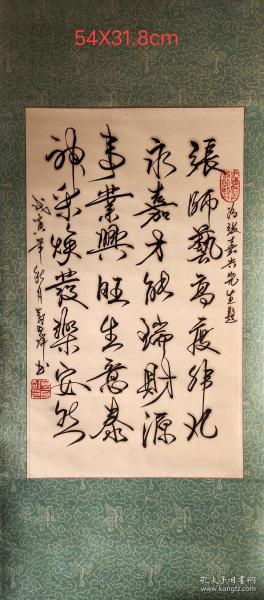 54X31.8cm
為張嘉先生題
張師藝高
永嘉才能瑞財源
事業興旺生意泰
神采煥發樂安然
戊寅年秋月 书
孔夫子旧书网